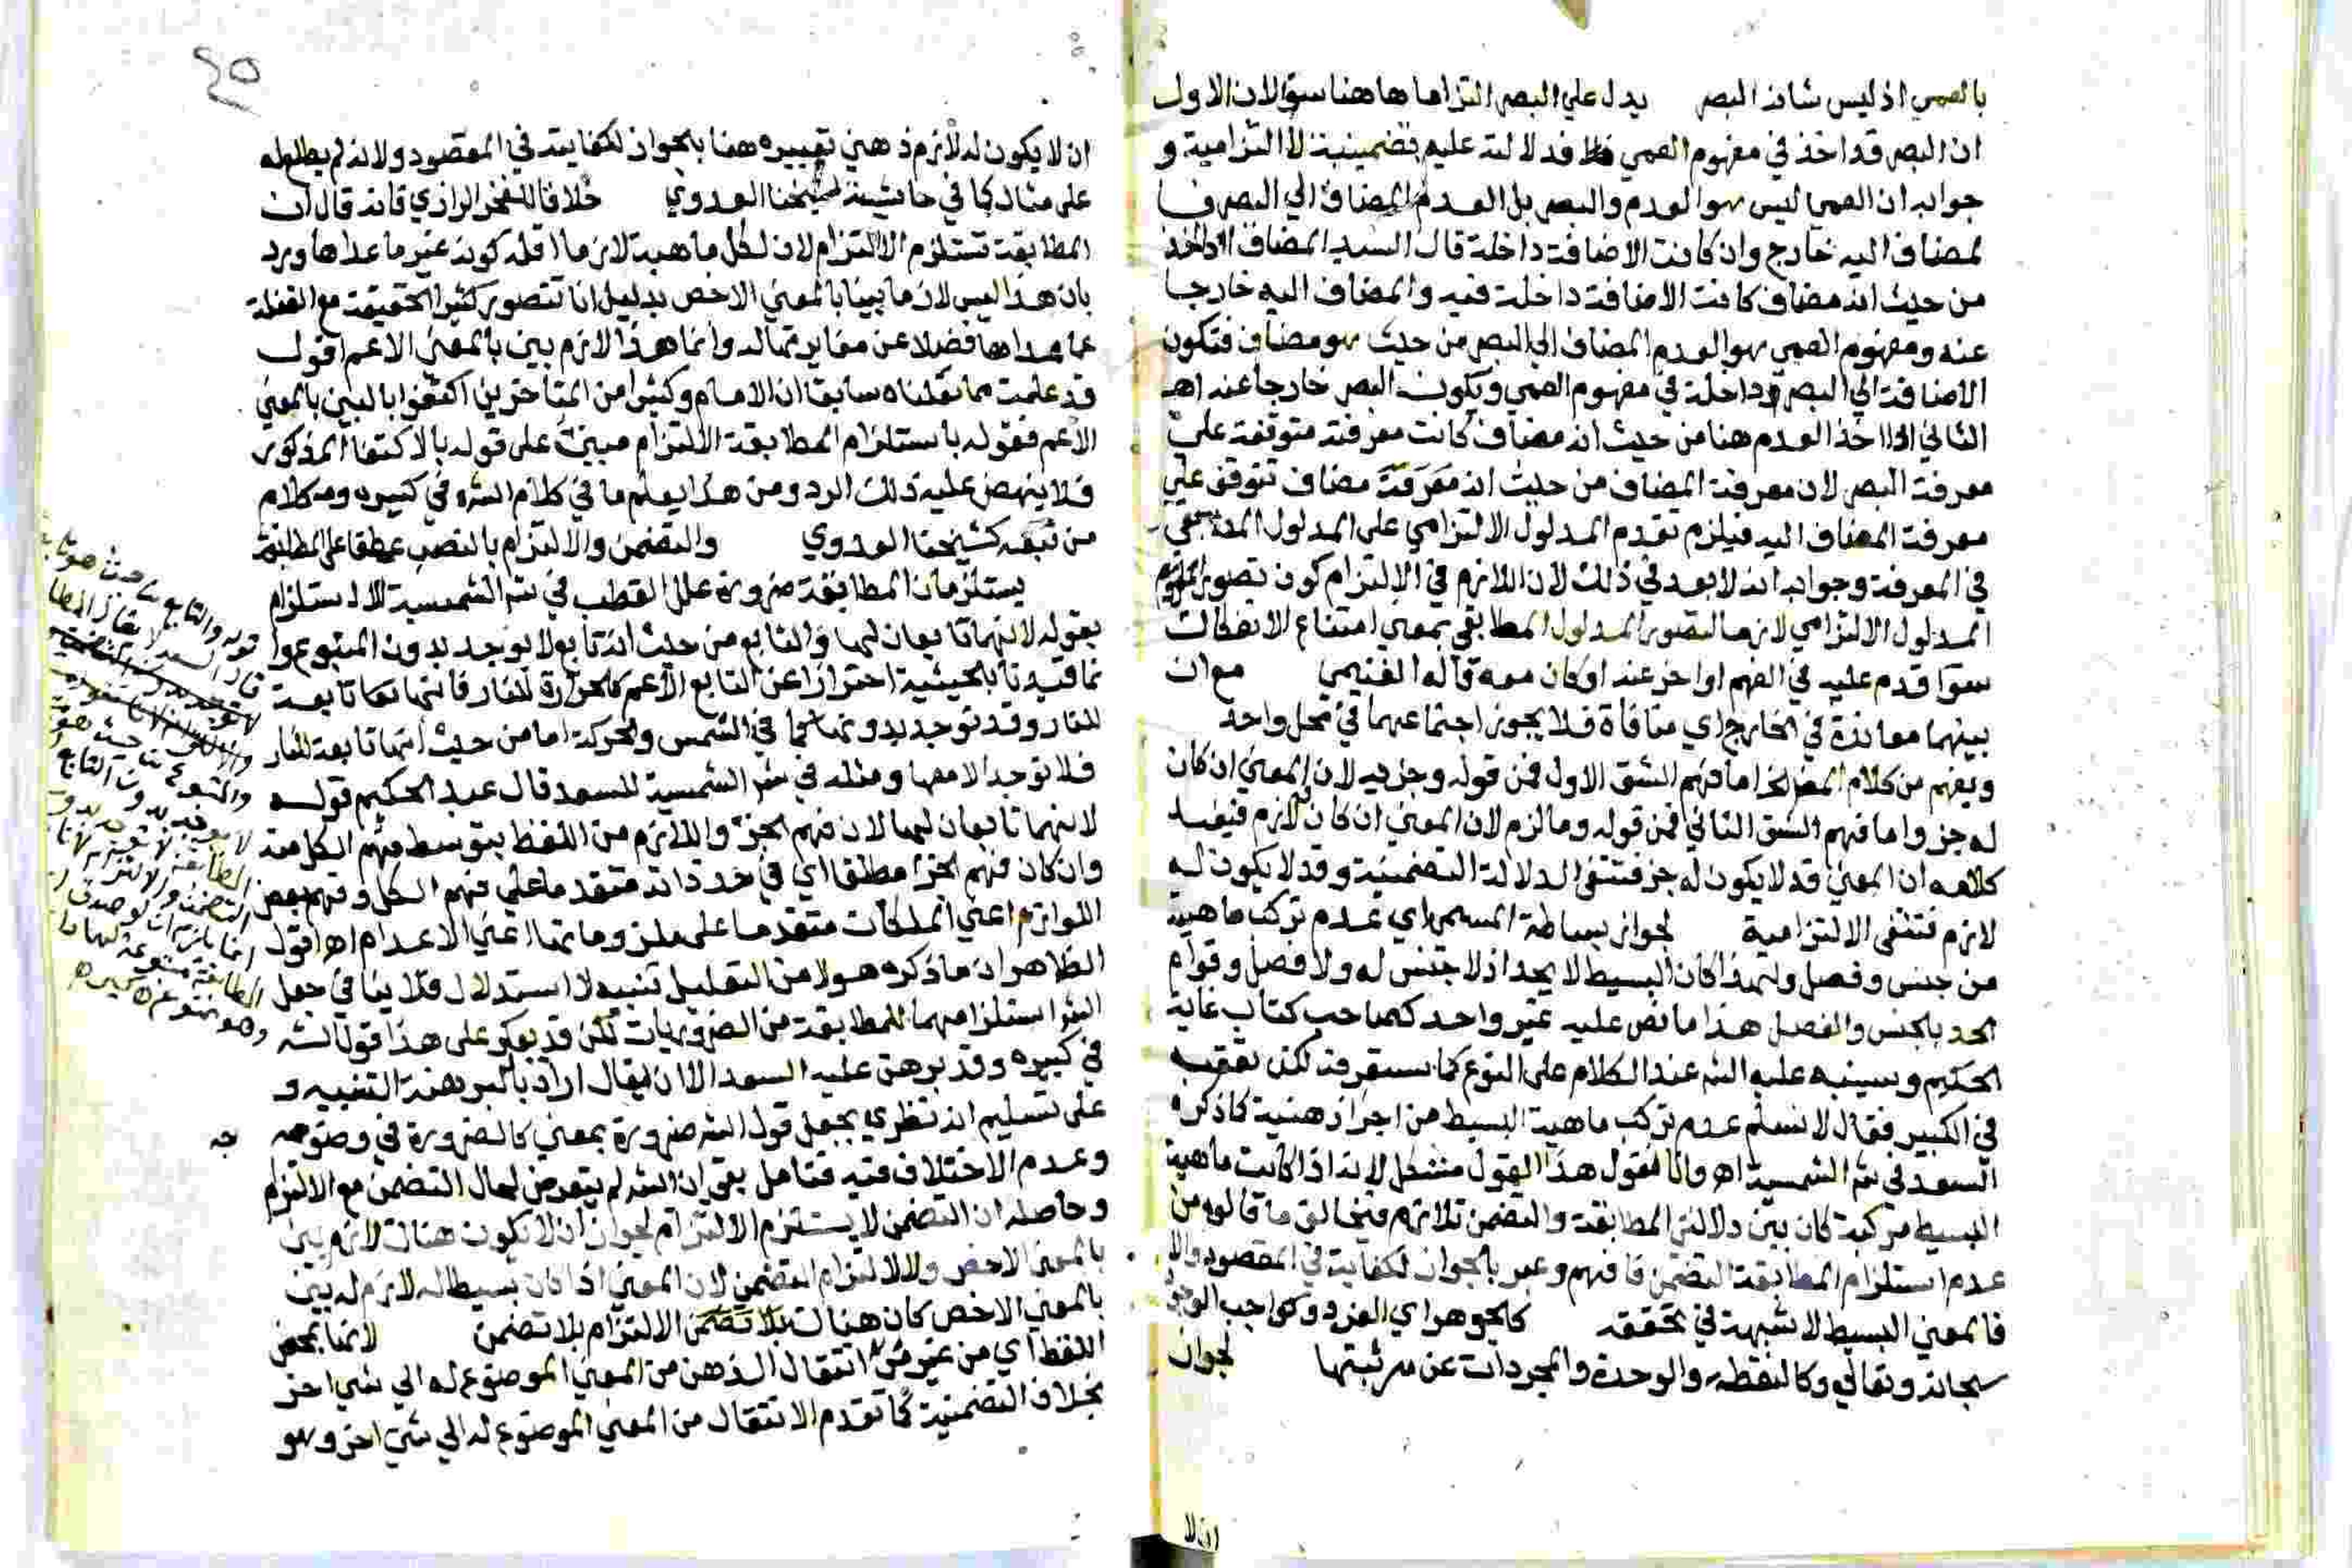 بالعمي اذ ليس شانه البصر يدل علي البصر التزاما هاهنا سؤالان الاول
ان البصر قد اخذ في مفهوم العمي فدلالته عليه تضمينية لا التزامية و
جوابه ان العمي ليس هو العدم والبصر بل العدم المضاف الي البصر فا
لمضاف اليه خارج وان كانت الاضافة داخلة قال السيد المضاف اذا اخذ
من حيث انه مضاف كانت الاضافة داخلة فيه والمضاف اليه خارجا
عنه ومفهوم العمي هو العدم المضاف الي البصر من حيث هو مضاف فتكون
الاضافة الي البصر داخلة في مفهوم العمي ويكون البصر خارجا عنه اهـ
الثاني اذا اخذ العدم هنا من حيث انه مضاف كانت معرفته متوقفة علي
معرفة البصر لان معرفة المضاف من حيث انه مضاف تتوقف علي
معرفة المضاف اليه فيلزم تقدم المدلول الالتزامي على المدلول المطابقي
في المعرفة وجوابه انه لا بعد في ذلك لان اللازم في الالتزام كون تصور
المدلول الالتزامي لازما لتصور المدلول المطابقي بمعني امتناع الانفكاك
سوآ قدم عليه في الفهم او اخر عنه او كان معه قاله الغنيمي مع ان
بينهما معاندة في الخارج اي منافاة فلا يجوز اجتماعهما في محل واحد
ويفهم من كلام المص الخ اما فهم الشق الاول فمن قوله وجزءيه لان المعني ان كان
له جز واما فهم الشق الثاني فمن قوله وما لزم لان المعني ان كان لازم فيفيد
كلامه ان المعني قد لا يكون له جز فتنتفي الدلالة التضمنية وقد لا يكون له
لازم فتنتفي الالتزامية لجواز بساطة المسمي اي عدم تركب ماهيته
من جنس وفصل ولهذا كان البسيط لا يحد اذ لا جنس له ولا فصل وقوام
الحد بالجنس والفصل هذا ما نص عليه غير واحد كصاحب كتاب غاية
الحكيم وسينبه عليه الشه عند الكلام على النوع كما ستعرفه لكن تعقبه
في الكبير فقال لا نسلم عدم تركب ماهية البسيط من اجزا ذهنية كما ذكره
السعد في شر الشمسية اهـ وانا اقول هذا القول مشكل لانه اذا كانت ماهية
البسيط مركبة كان بين دلالتي المطابقة والتضمن تلازم فيخالف ما قالوه من
عدم استلزام المطابقة التضمن فافهم وعبر بالجواز لكفايته في المقصود والا
فالمعني البسيط لا شبهة في تحققه كالجوهر اي الفرد وكواجب الوجود
سبحانه وتعالي وكالنقطة والوحدة والمجردات عن مرتبتها لجواز
ان لا
٤٥
ان لا يكون له لازم ذهني تعبيره هنا بالجواز لكفايته في المقصود ولانه لم يطلع له
على مثال كما في حاشية شيخنا العدوي خلافا للفخر الرازي فانه قال ان
المطابقة تستلزم الالتزام لان لكل ماهية لازما اقله كونه غير ما عداها ورد
بان هذا ليس لازما بينا بالمعني الاخص بدليل انا نتصور كثير الحقيقة مع الغفلة
عما عداها فضلا عن مغايرتها له وانما هذا لازم بين بالمعني الاعم اقول
قد علمت مما نقلناه سابقا ان الامام وكثيرا من المتاخرين اكتفوا بالبين بالمعني
الاعم فقوله باستلزام المطابقة الالتزام مبين على قوله بالاكتفا المذكور
فلا ينهض عليه ذلك الرد ومن هذا يعلم ما في كلام الشه في كبيره وكلام
من تبعه كشيخنا العدوي والتضمن والالتزام بالنصب عطفا على المطابقة
يستلزمان المطابقة ضرورة علل القطب في شر الشمسية الاستلزام
بقوله لانهما تابعان لها والتابع من حيث انه تابع لا يوجد بدون المتبوع وا
نما قيدنا بالحيثية احترازا عن التابع الاعم كالحرارة للنار فانها تابعة
للنار وقد توجد بدونها كما في الشمس والحركة اما من حيث انها تابعة للنار
فلا توجد الا معها ومثله في شر الشمسية للسعد قال عبد الحكيم قوله
لانهما تابعان لها لان فهم الجزء واللازم من اللفظ بتوسط فهم الكل منه
وان كان فهم الجزا مطلقا اي في حد ذاته متقدما على فهم الكل وفهم بعض
اللوازم اعني الملكات متقدما على ملزوماتها اعني الاعدام اهـ اقول
الظاهر ان ما ذكره هولا من التعليل تنبيه لا استدلال فلا ينافي جعل
الشه استلزامهما للمطابقة من الضروريات لكن قد يعكر على هذا قول الشه
في كبيره وقد برهن عليه السعد الا ان يقال اراد بالبرهنة التنبيه و
على تسليم انه نظري يجعل قول الشه ضرورة بمعني كالضرورة في وضوحه
وعدم الاختلاف فيه فتامل بقي ان الشه لم يتعرض لحال التضمن مع الالتزام
وحاصله ان التضمن لا يستلزم الالتزام لجواز ان لا يكون هناك لازم بين
بالمعني الاخص ولا الالتزام التضمن لان المعني اذا كان بسيطا له لازم له بين
بالمعني الاخص كان هناك الالتزام بلا تضمن لانها بمحض
اللفظ اي من غير انتقال الذهن من المعني الموضوع له الي شي اخر
بخلاف التضمنية كما تقدم الانتقال من المعني الموضوع له الي شي اخر وهو
قوله والتابع من حيث هو تابع
قال السعد لا يقال المطا
لا توجد بدون التضمن
والمتبوع من حيث هو
لا يوجد بدون التابع